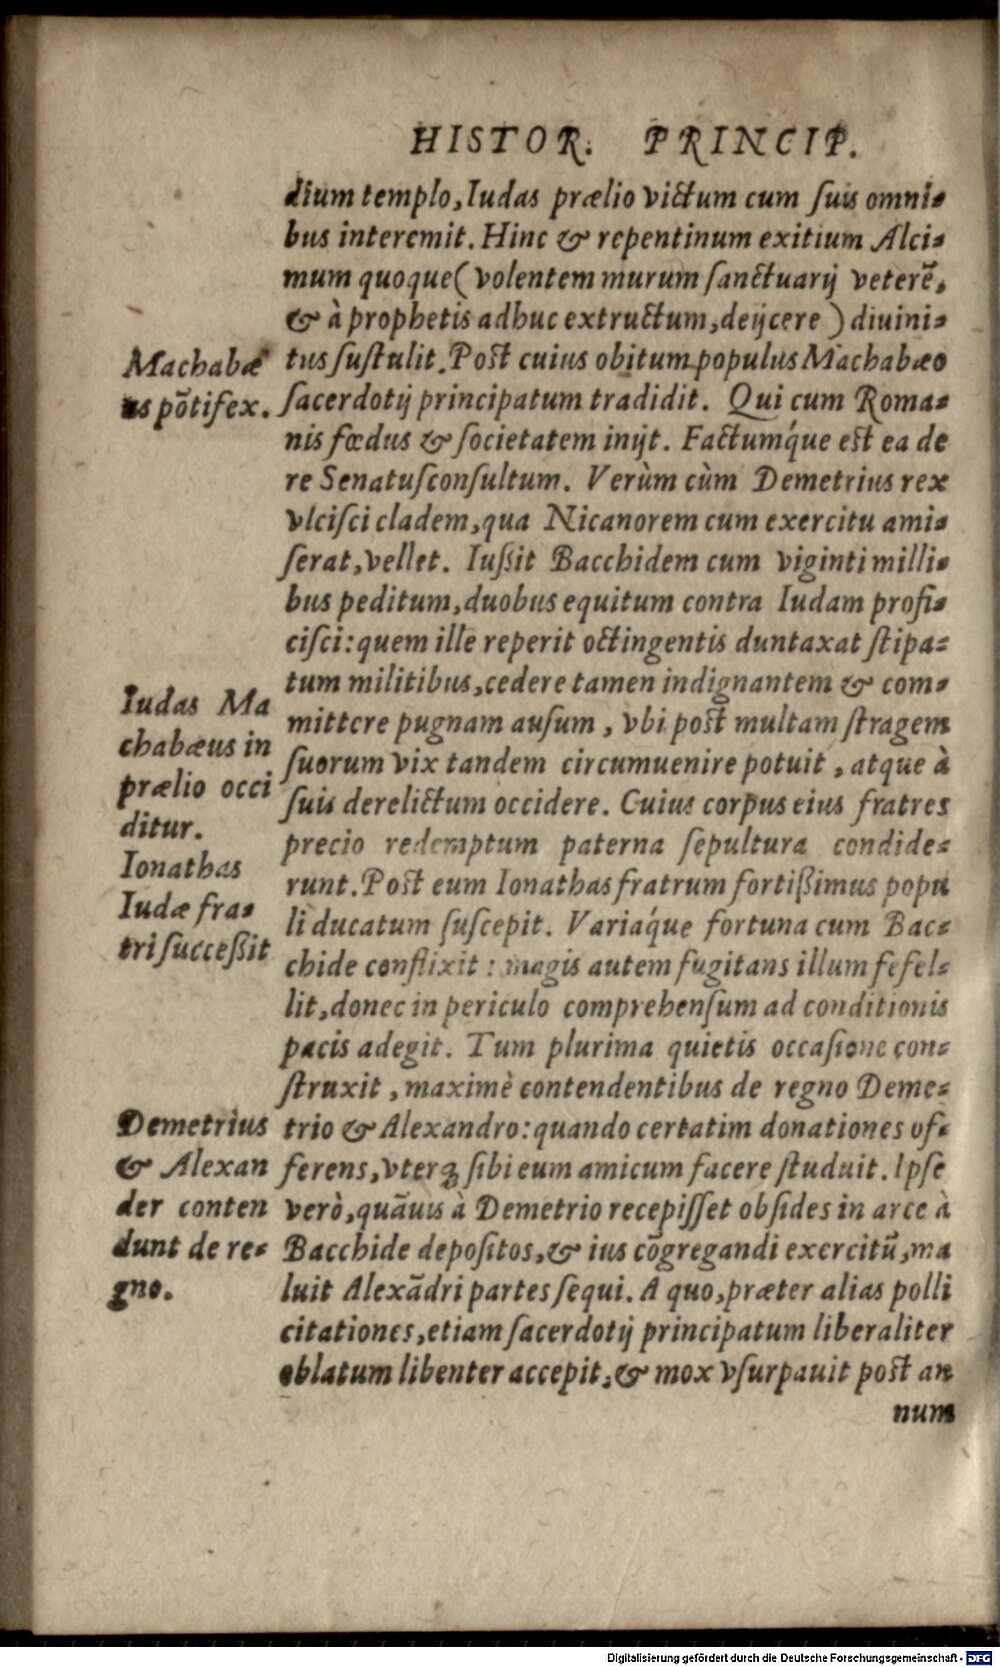 HISTOR. PRINCIP.
dium templo, Iudas prælio victum cum ſuis omni-
bus interemit. Hinc & repentinum exitium Alci-
mum quoque ( volentem murum ſanctuarij veterē,
& à prophetis adhuc extructum, deijcere ) diuini-
tus ſuſtulit. Poſt cuius obitum populus Machabæo
ſacerdotij principatum tradidit. Qui cum Roma-
nis fœdus & ſocietatem inijt. Factumq́ue eſt ea de
re Senatuſconſultum. Verùm cùm Demetrius rex
vlciſci cladem, qua Nicanorem cum exercitu ami-
ſerat, vellet. Iußit Bacchidem cum viginti milli-
bus peditum, duobus equitum contra Iudam profi-
ciſci: quem ille reperit octingentis duntaxat ſtipa-
tum militibus, cedere tamen indignantem & com-
mittere pugnam auſum, vbi poſt multam ſtragem
ſuorum vix tandem circumuenire potuit, atque à
ſuis derelictum occidere. Cuius corpus eius fratres
precio redemptum paterna ſepultura condide-
runt. Poſt eum Ionathas fratrum fortißimus popu
li ducatum ſuſcepit. Variaq́ue fortuna cum Bac-
chide conflixit: magis autem fugitans illum fefel-
lit, donec in periculo comprehenſum ad conditionis
pacis adegit. Tum plurima quietis occaſione con-
ſtruxit, maximè contendentibus de regno Deme-
trio & Alexandro: quando certatim donationes of-
ferens, vterq; ſibi eum amicum facere ſtuduit. Ipſe
verò, quāuis à Demetrio recepiſſet obſides in arce à
Bacchide depoſitos, & ius cōgregandi exercitū, ma
luit Alexādri partes ſequi. A quo, præter alias polli
citationes, etiam ſacerdotij principatum liberaliter
oblatum libenter accepit, & mox vſurpauit poſt an
num
Machabæ
us pōtifex.
Iudas Ma
chabæus in
prælio occi
ditur.
Ionathas
Iudæ fra-
tri ſucceßit
Demetrius
& Alexan
der conten
dunt de re-
gno.
Digitalisierung gefördert durch die Deutsche Forschungsgemeinschaft - DFG